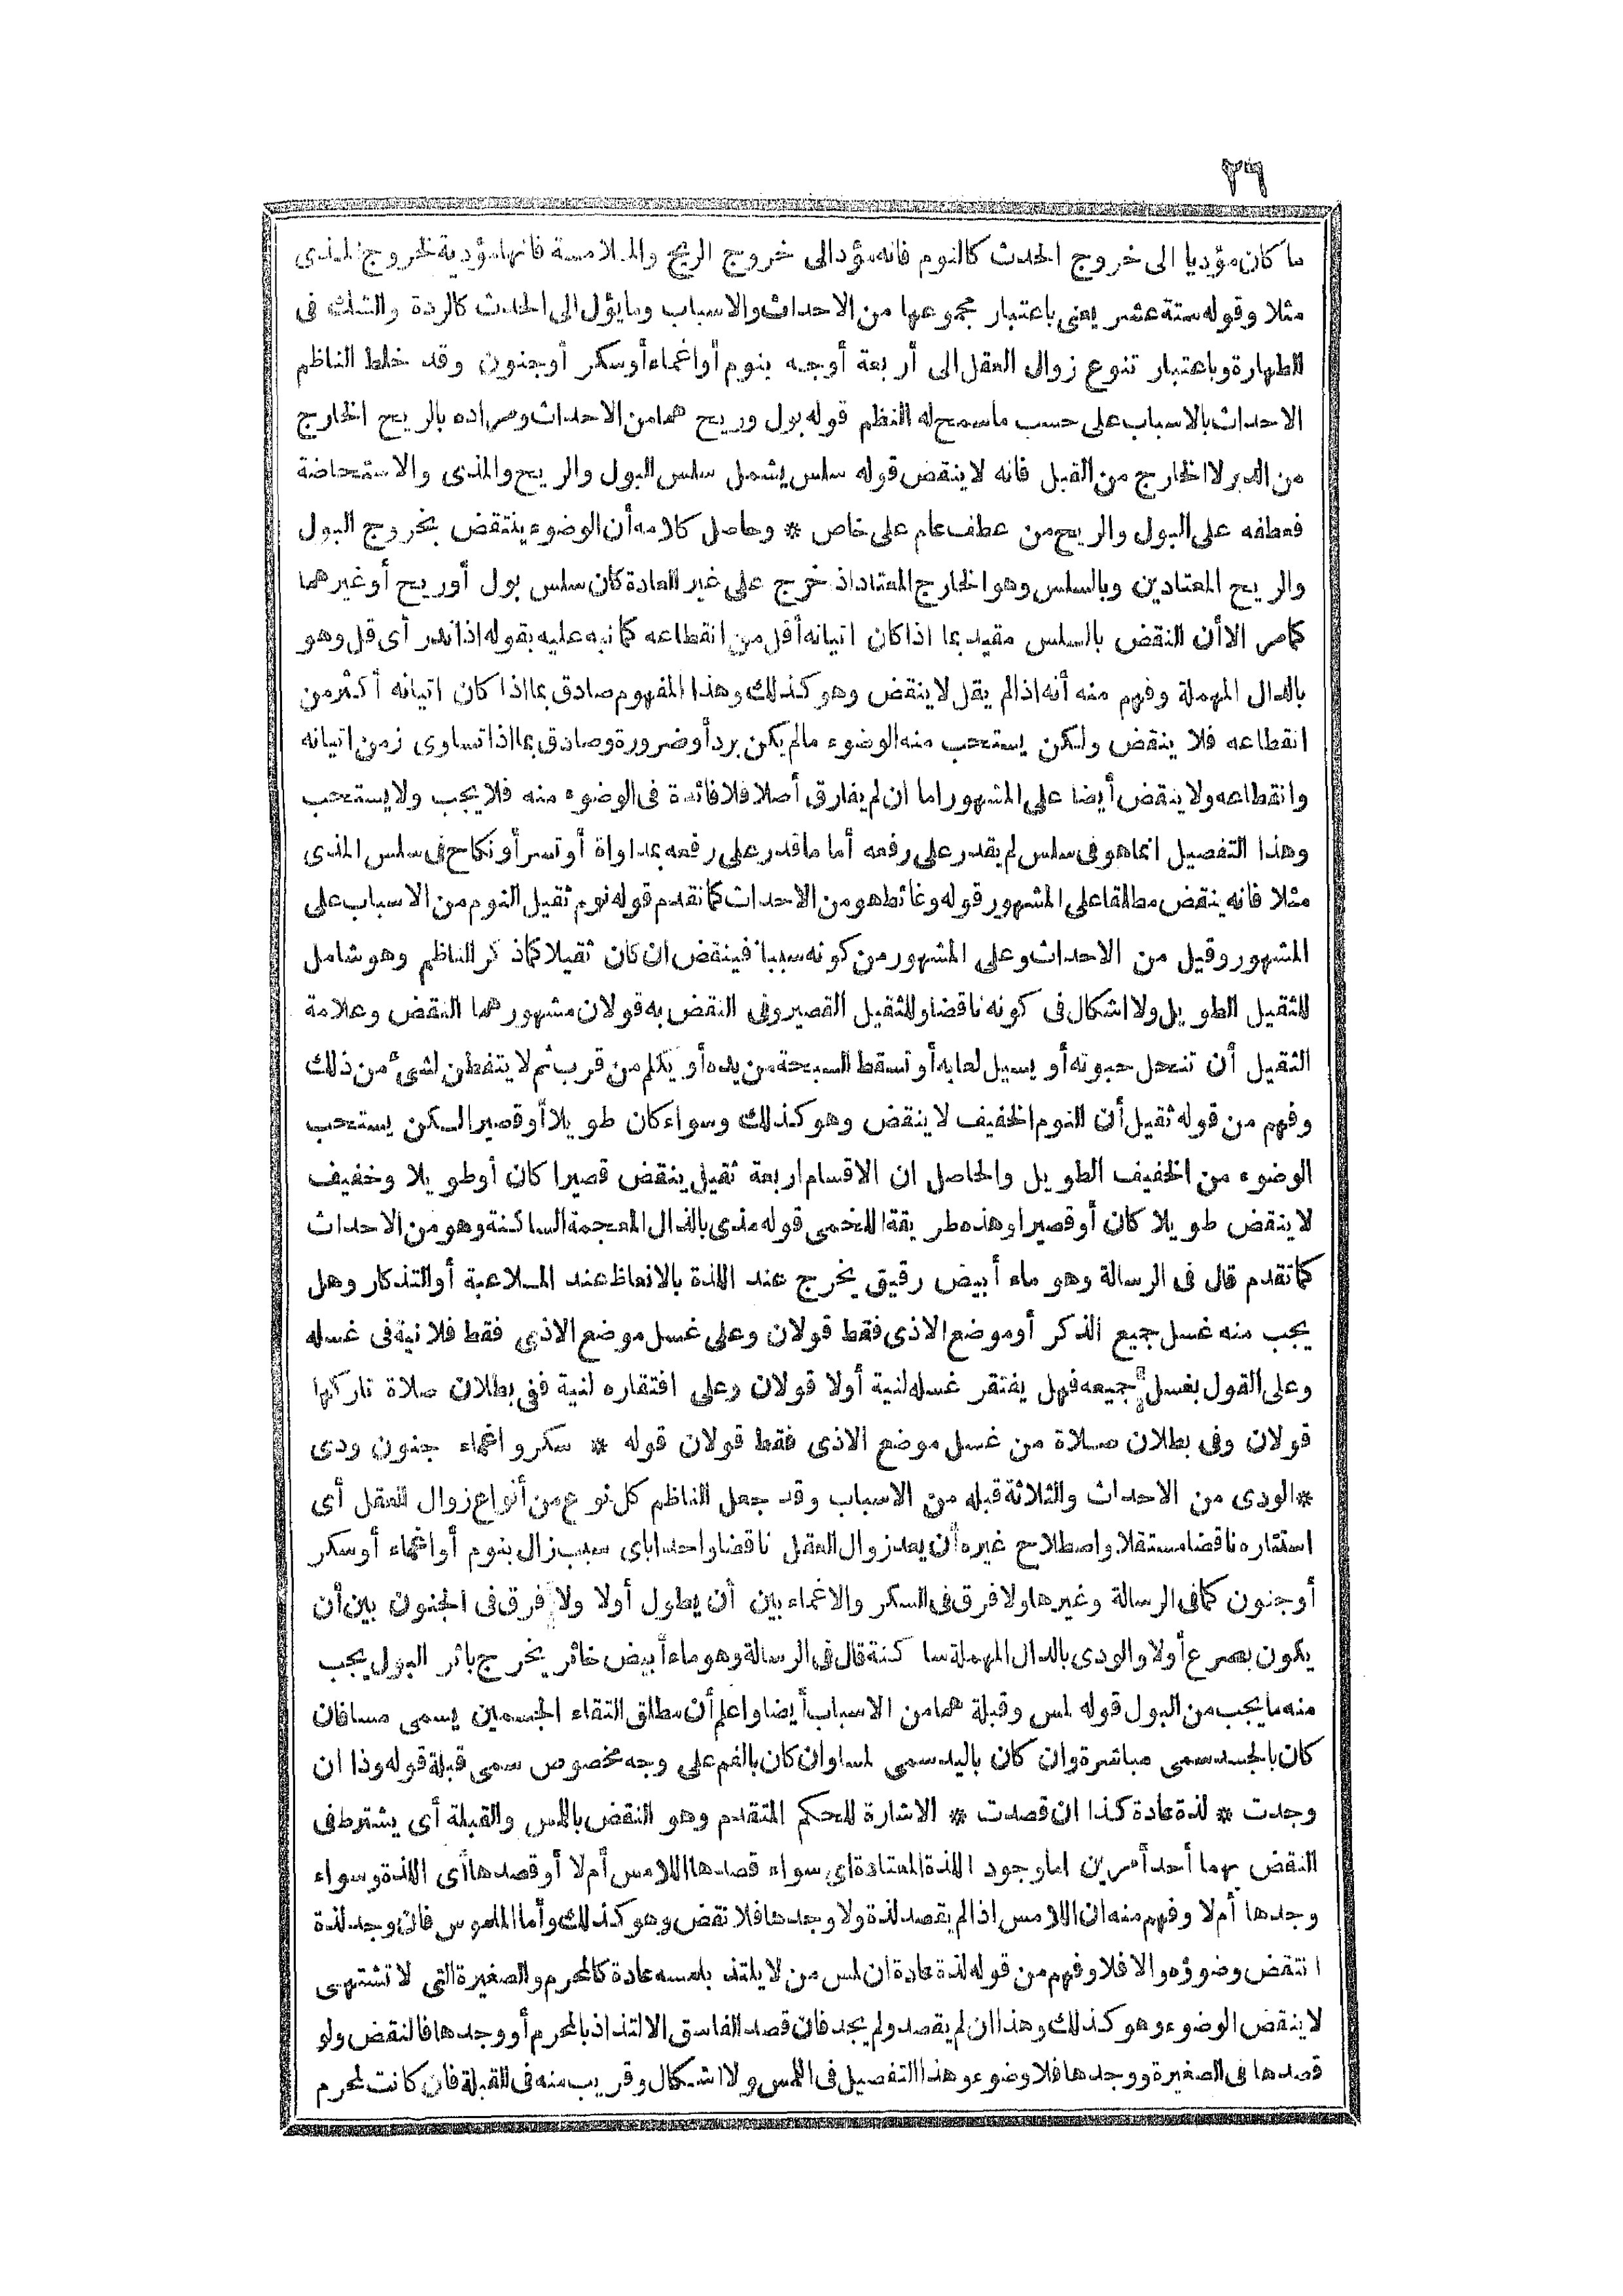 ٣٦
ما كان مؤديا الى خروج الحدث كالنوم فانه مؤد الى خروج الريح والملامسة فانها مؤدية لخروج المذى
مثلا وقوله ستة عشر يعنى باعتبار مجموعها من الاحداث والاسباب وما يؤل الى الحدث كالردة والشك فى
الطهارة وباعتبار تنوع زوال العقل الى أربعة أوجه بنوم أو اغماء أو سكر أو جنون وقد خلط الناظم
الاحداث بالاسباب على حسب ما سمح له النظم قوله بول وريح هما من الاحداث ومراده بالريح الخارج
من الدبر لا الخارج من القبل فانه لا ينقض قوله سلس يشمل سلس البول والريح والمذى والاستحاضة
فعطفه على البول والريح من عطف عام على خاص * وحاصل كلامه أن الوضوء ينتقض بخروج البول
والريح المعتادين وبالسلس وهو الخارج المعتاد اذ خرج على غير العادة كان سلس بول أو ريح أو غيرهما
كما مر الا أن النقض بالسلس مقيد بما اذا كان اتيانه أقل من انقطاعه كما نبه عليه بقوله اذا ندر أى قل وهو
بالدال المهملة وفهم منه أنه اذا لم يقل لا ينقض وهو كذلك وهذا المفهوم صادق بما اذا كان اتيانه أكثر من
انقطاعه فلا ينقض ولكن يستحب منه الوضوء ما لم يكن برد أو ضرورة وصادق بما اذا تساوى زمن اتيانه
وانقطاعه ولا ينقض أيضا على المشهور اما ان لم يفارق أصلا فلا فائدة فى الوضوء منه فلا يجب ولا يستحب
وهذا التفصيل انما هو فى سلس لم يقدر على رفعه أما ما قدر على رفعه بمداواة أو تسر أو نكاح فى سلس المذى
مثلا فانه ينقض مطلقا على المشهور قوله وغائط هو من الاحداث كما تقدم قوله نوم ثقيل النوم من الاسباب على
المشهور وقيل من الاحداث وعلى المشهور من كونه سببا فينقض ان كان ثقيلا كما ذكر الناظم وهو شامل
للثقيل الطويل ولا اشكال فى كونه ناقضا وللثقيل القصير وفى النقض به قولان مشهورهما النقض وعلامة
الثقيل أن تنحل حبوته أو يسيل لعابه أو تسقط السبحة من يده أو يكلم من قرب ثم لا يتفطن لشئ من ذلك
وفهم من قوله ثقيل أن النوم الخفيف لا ينقض وهو كذلك وسواء كان طويلا أو قصيرا لكن يستحب
الوضوء من الخفيف الطويل والحاصل ان الاقسام اربعة ثقيل ينقض قصيرا كان أو طويلا وخفيف
لا ينقض طويلا كان أو قصيرا وهذه طريقة اللخمى قوله مذى بالذال المعجمة الساكنة وهو من الاحداث
كما تقدم قال فى الرسالة وهو ماء أبيض رقيق يخرج عند اللذة بالانعاظ عند الملاعبة أو التذكار وهل
يجب منه غسل جميع الذكر أو موضع الاذى فقط قولان وعلى غسل موضع الاذى فقط فلا نية فى غسله
وعلى القول بغسل جميعه فهل يفتقر غسله لنية أولا قولان وعلى افتقاره لنية ففى بطلان صلاة تاركها
قولان وفى بطلان صلاة من غسل موضع الاذى فقط قولان قوله * سكر واغماء جنون ودى
* الودى من الاحداث والثلاثة قبله من الاسباب وقد جعل الناظم كل نوع من أنواع زوال العقل أى
استتاره ناقضا مستقلا واصطلاح غيره أن يعد زوال العقل ناقضا واحدا باى سبب زال بنوم أو اغماء أو سكر
أو جنون كما فى الرسالة وغيرها ولا فرق فى السكر والاغماء بين أن يطول أولا ولا فرق فى الجنون بين أن
يكون بصرع أولا والودى بالدال المهملة ساكنة قال فى الرسالة وهو ماء أبيض خاثر يخرج باثر البول يجب
منه ما يجب من البول قوله لمس وقبلة هما من الاسباب أيضا واعلم أن مطلق التقاء الجسمين يسمى مسا فان
كان بالجسد سمى مباشرة وان كان باليد سمى لمسا وان كان بالفم على وجه مخصوص سمى قبلة قوله وذا ان
وجدت * لذة عادة كذا ان قصدت * الاشارة للحكم المتقدم وهو النقض باللمس والقبلة أى يشترط فى
النقض بهما أحد أمرين اما وجود اللذة المعتادة اى سواء قصدها اللامس أم لا أو قصدها أى اللذة وسواء
وجدها أم لا وفهم منه ان اللامس اذا لم يقصد لذة ولا وجدها فلا نقض وهو كذلك وأما الملموس فان وجد لذة
انتقض وضوؤه والا فلا وفهم من قوله لذة عادة ان لمس من لا يلتذ بلمسه عادة كالمحرم والصغيرة التى لا تشتهى
لا ينقض الوضوء وهو كذلك وهذا ان لم يقصد ولم يجد فان قصد الفاسق الالتذاذ بالمحرم أو وجدها فالنقض ولو
قصدها فى الصغيرة ووجدها فلا وضوء وهذا التفصيل فى اللمس ولا اشكال وقريب منه فى القبلة فان كانت لمحرم